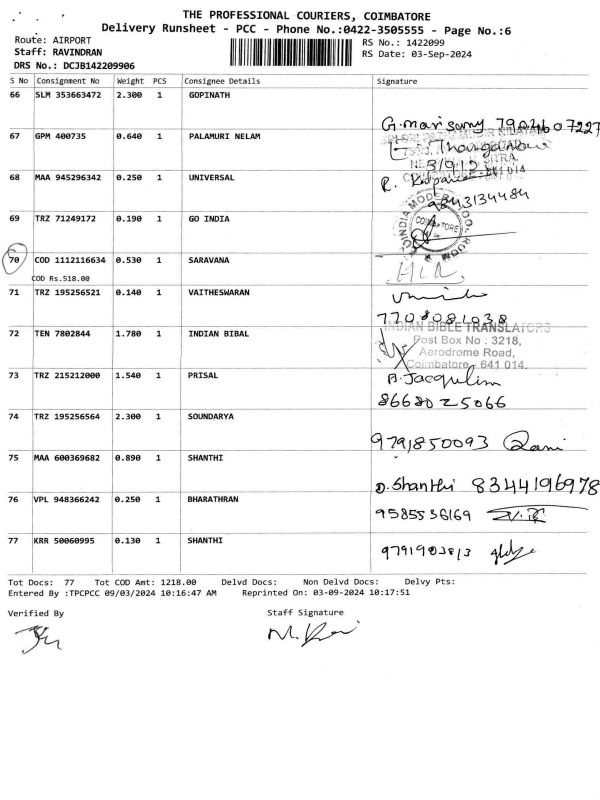 THE PROFESSIONAL COURIERS, COIMBATORE
Delivery Runsheet - PCC - Phone No.:0422-3505555 - Page No.:6
Route: AIRPORT
Staff: RAVINDRAN
DRS No.: DCJB142209906
RS No.: 1422099
RS Date: 03-Sep-2024
S No Consignment No Weight PCS Consignee Details Signature
66 SLM 353663472 2.300 1 GOPINATH
G. mari samy 7904607227
67 GPM 400735 0.640 1 PALAMURI NELAM
68 MAA 945296342 0.250 1 UNIVERSAL
9843134484
69 TRZ 71249172 0.190 1 GO INDIA
COIMBATORE
70 COD 1112116634 0.530 1 SARAVANA
COD Rs.518.00
71 TRZ 195256521 0.140 1 VAITHESWARAN
7708081038
72 TEN 7802844 1.780 1 INDIAN BIBAL
INDIAN BIBLE TRANSLATORS
Post Box No : 3218,
Aerodrome Road,
Coimbatore - 641 014.
73 TRZ 215212000 1.540 1 PRISAL
A. Jacqulim
8668025066
74 TRZ 195256564 2.300 1 SOUNDARYA
9791850093 Rani
75 MAA 600369682 0.890 1 SHANTHI
D. Shanthi 8344196978
76 VPL 948366242 0.250 1 BHARATHRAN
9585536169
77 KRR 50060995 0.130 1 SHANTHI
9791903813
Tot Docs: 77 Tot COD Amt: 1218.00 Delvd Docs: Non Delvd Docs: Delvy Pts:
Entered By :TPCPCC 09/03/2024 10:16:47 AM Reprinted On: 03-09-2024 10:17:51
Verified By
Staff Signature